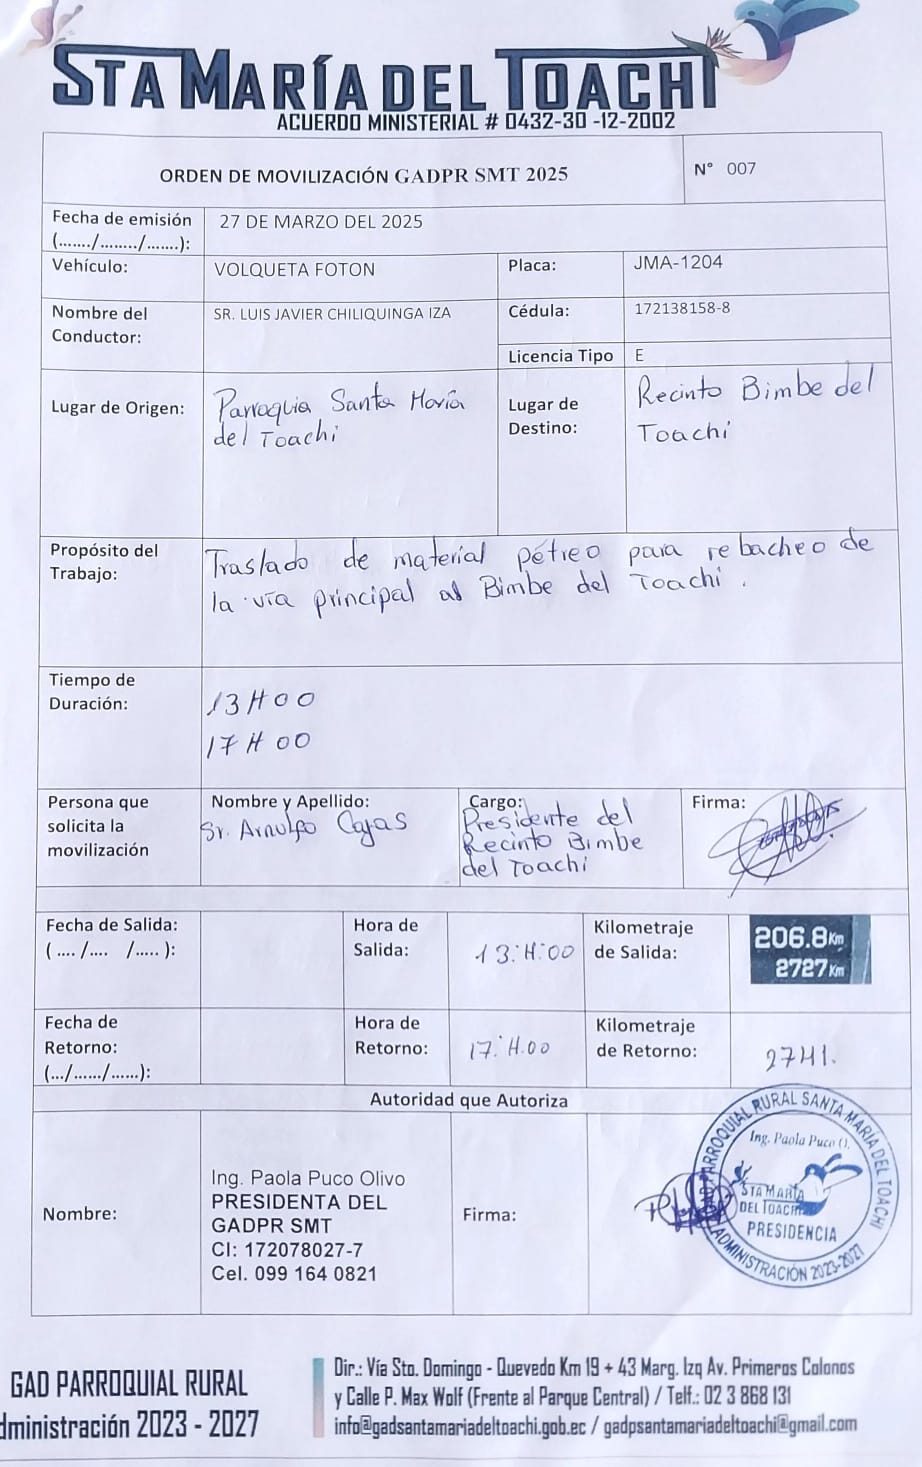 STA MARÍA DEL TOACHI
ACUERDO MINISTERIAL # 0432-30 -12-2002
ORDEN DE MOVILIZACIÓN GADPR SMT 2025
N° 007
Fecha de emisión
(......./......../.......):
27 DE MARZO DEL 2025
Vehículo:
VOLQUETA FOTON
Placa:
JMA-1204
Nombre del
Conductor:
SR. LUIS JAVIER CHILIQUINGA IZA
Cédula:
172138158-8
Licencia Tipo
E
Lugar de Origen:
Parroquia Santa María
del Toachi
Lugar de
Destino:
Recinto Bimbe del
Toachi
Propósito del
Trabajo:
Traslado de material pétreo para rebacheo de
la vía principal al Bimbe del Toachi.
Tiempo de
Duración:
13H00
17H00
Persona que
solicita la
movilización
Nombre y Apellido:
Sr. Arnulfo Cajas
Cargo:
Presidente del
Recinto Bimbe
del Toachi
Firma:
Fecha de Salida:
( .... /.... /..... ):
Hora de
Salida:
13:H:00
Kilometraje
de Salida:
206.8Km
2727Km
Fecha de
Retorno:
(.../....../......):
Hora de
Retorno:
17:H.00
Kilometraje
de Retorno:
2741.
Autoridad que Autoriza
Nombre:
Ing. Paola Puco Olivo
PRESIDENTA DEL
GADPR SMT
CI: 172078027-7
Cel. 099 164 0821
Firma:
PARROQUIAL RURAL SANTA MARIA DEL TOACHI
Ing. Paola Puco O.
STA MARÍA
DEL TOACHI
PRESIDENCIA
ADMINISTRACIÓN 2023-2027
GAD PARROQUIAL RURAL
dministración 2023 - 2027
Dir.: Vía Sto. Domingo - Quevedo Km 19 + 43 Marg. Izq Av. Primeros Colonos
y Calle P. Max Wolf (Frente al Parque Central) / Telf.: 02 3 868 131
info@gadsantamariadeltoachi.gob.ec / gadpsantamariadeltoachi@gmail.com